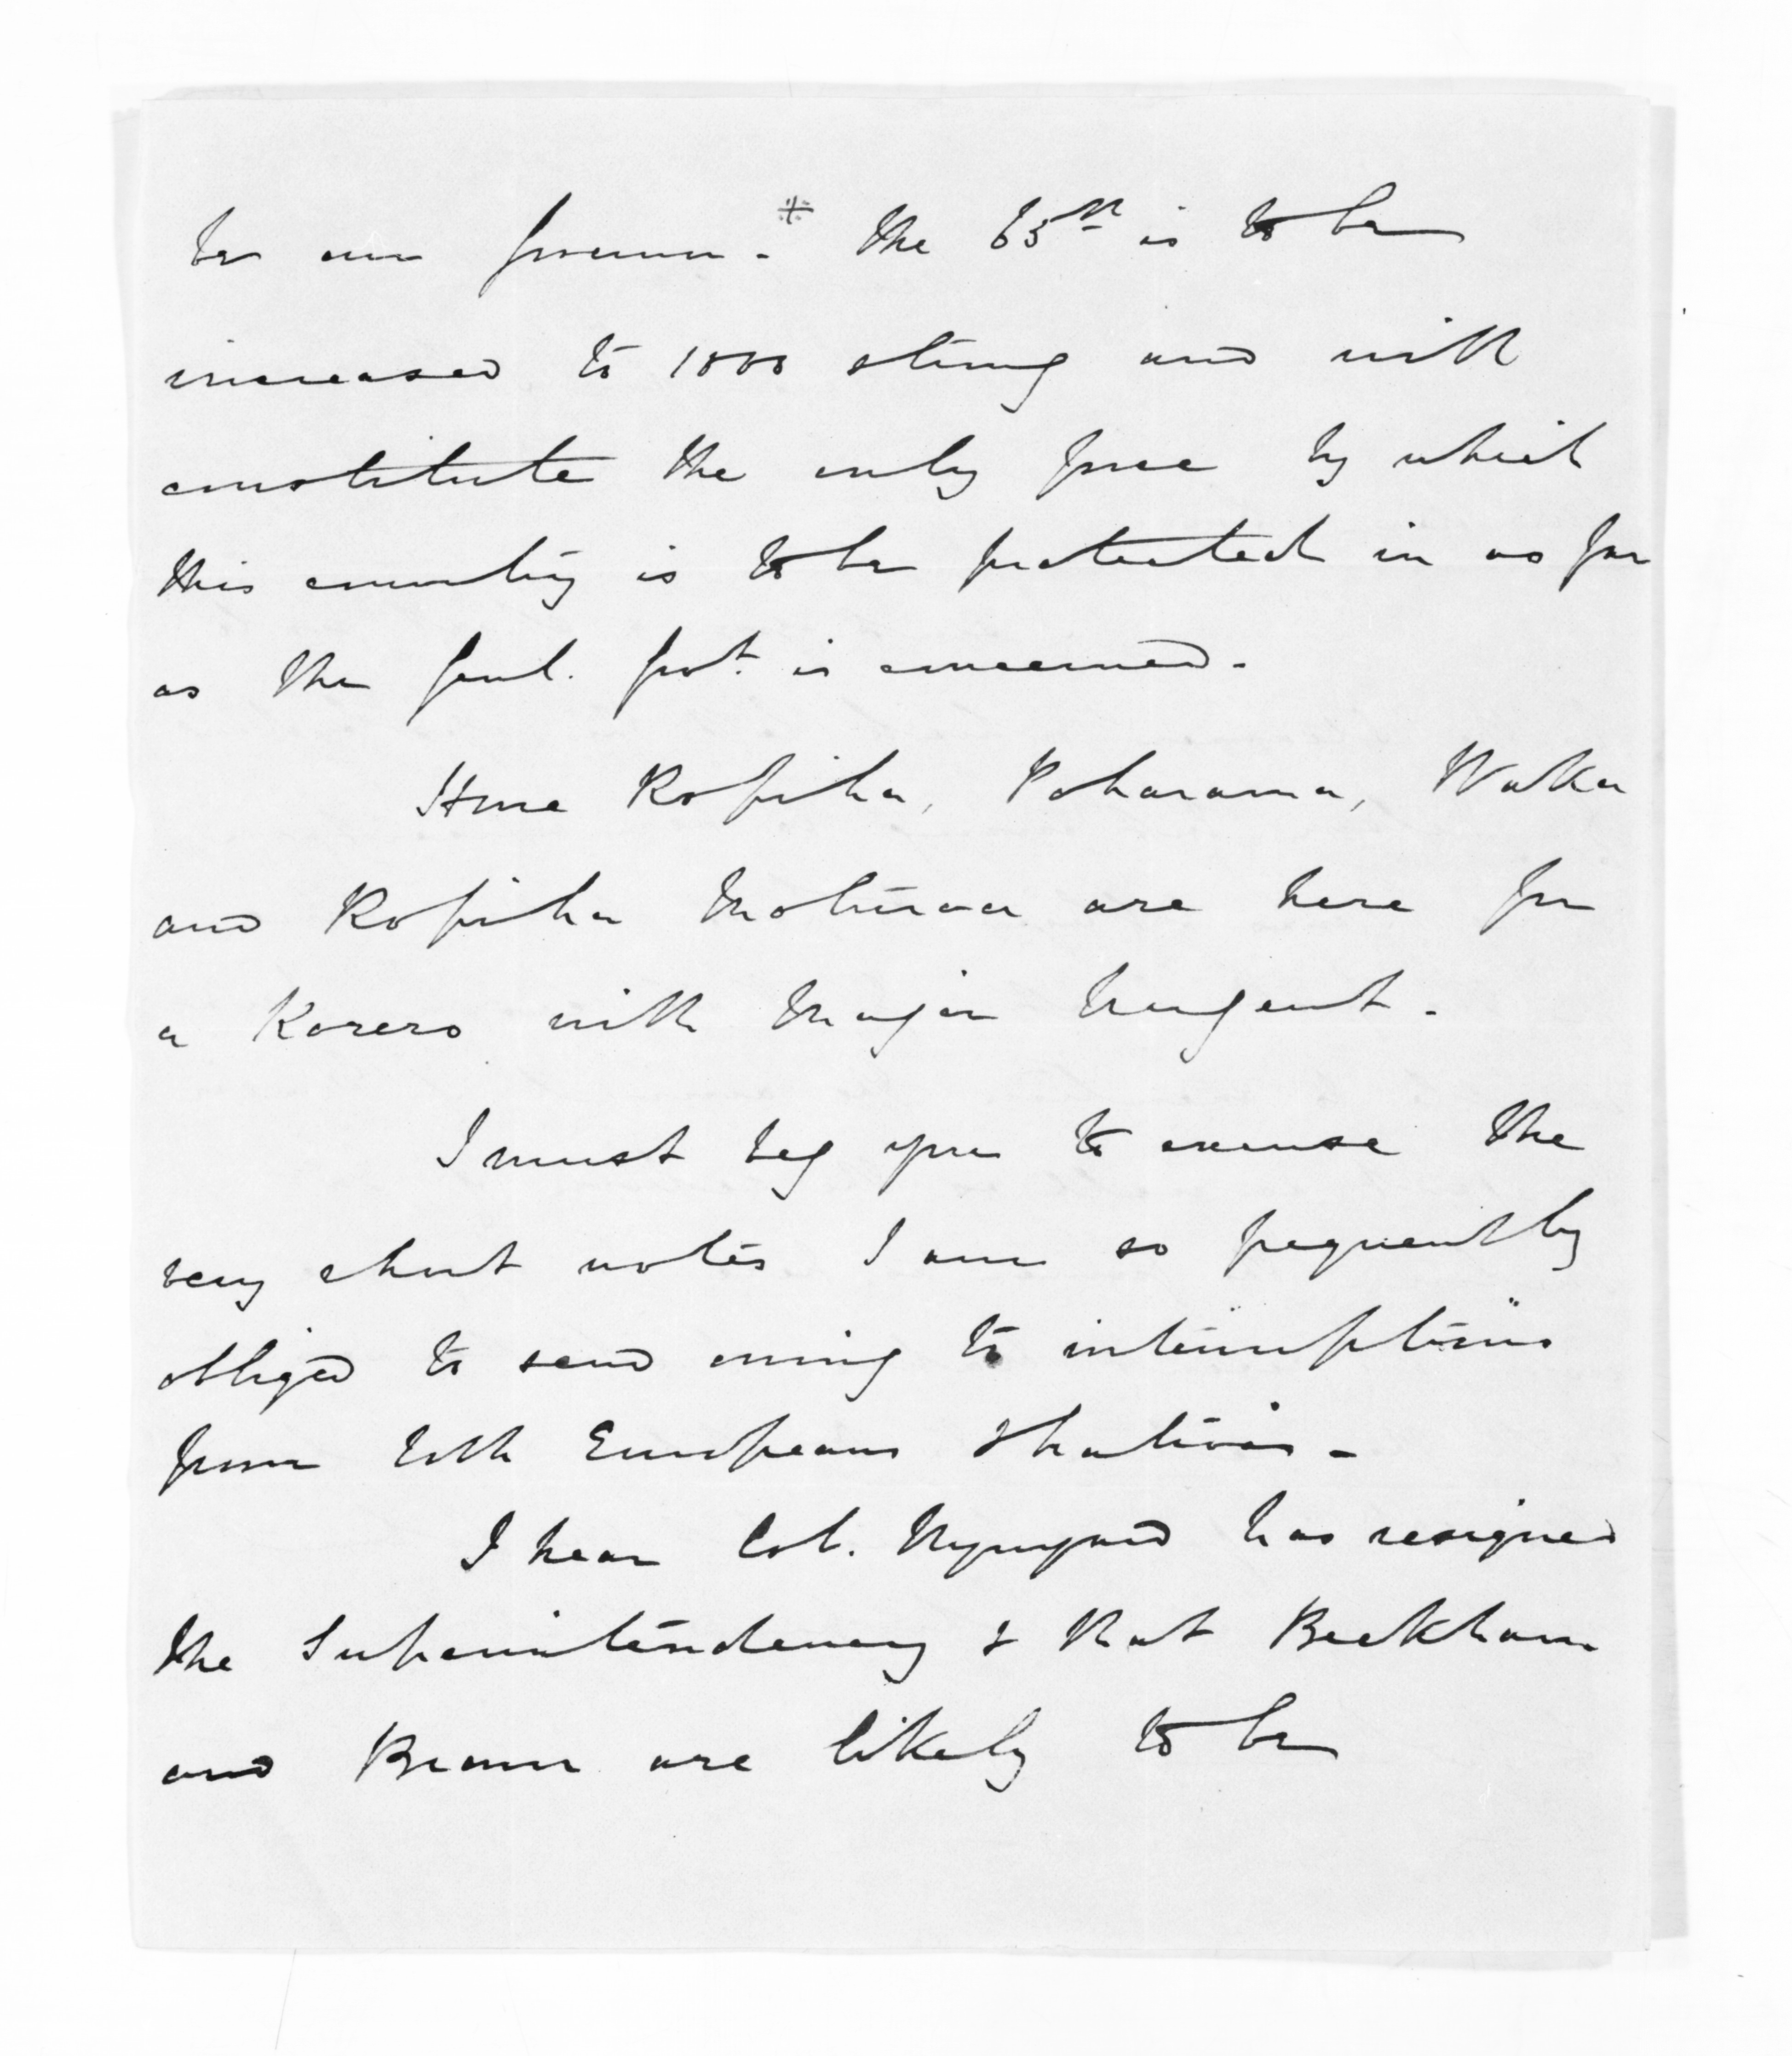 be our governor. * The 65th is to be
increased to 1000 strong and will
constitute the only force by which
this country is to be protected in as far
as the Genl. Govt. is concerned.
Hone Ropiha, Poharama, Waka
and Ropiha Moturoa are here for
a Korero with Major Nugent.
I must beg you to excuse the
very short notes I am so frequently
obliged to send owing to interruptions
from both Europeans & Natives -
I hear Col. Wynyard has resigned
the Superintendency & that Beckham
and Brown are likely to be